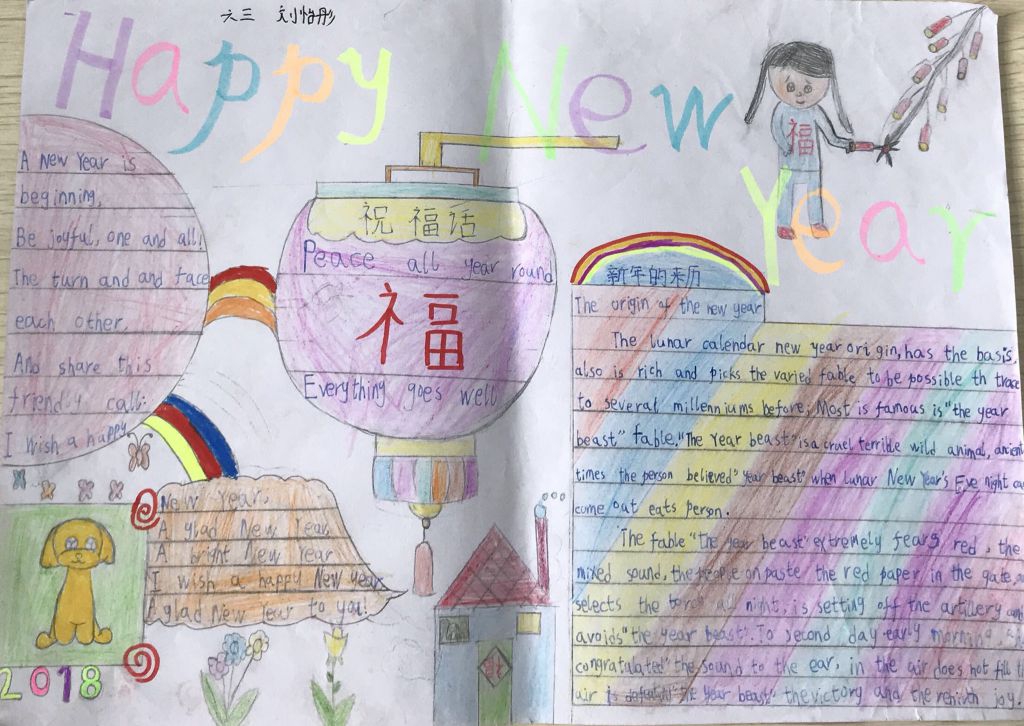 六三 刘怡彤
Happy New
Year
A New Year is
beginning,
Be joyful, one and all!
The turn and and face
each other,
And share this
friendly call:
I wish a happy
New Year,
A glad New Year,
A bright New Year
I wish a happy New year
A glad New Year to you!
2018
祝福话
Peace all year round
福
Everything goes well
福
新年的来历
The origin of the new year
The lunar calendar new year origin, has the basis,
also is rich and picks the varied fable to be possible th trace
to several millenniums before; Most is famous is "the year
beast" fable. "The Year beast" is a cruel terrible wild animal, ancient
times the person believed "year beast" when lunar New Year's Eve night can
come out eats person.
The fable "the year beast" extremely fears red, the
mixed sound, the people on paste the red paper in the gate,
selects the torch all night, is setting off the artillery
avoids "the year beast". To second day early morning
congratulated "the sound to the ear, in the air does not fill
air is "the year beast" the victory and the rebirth joy.